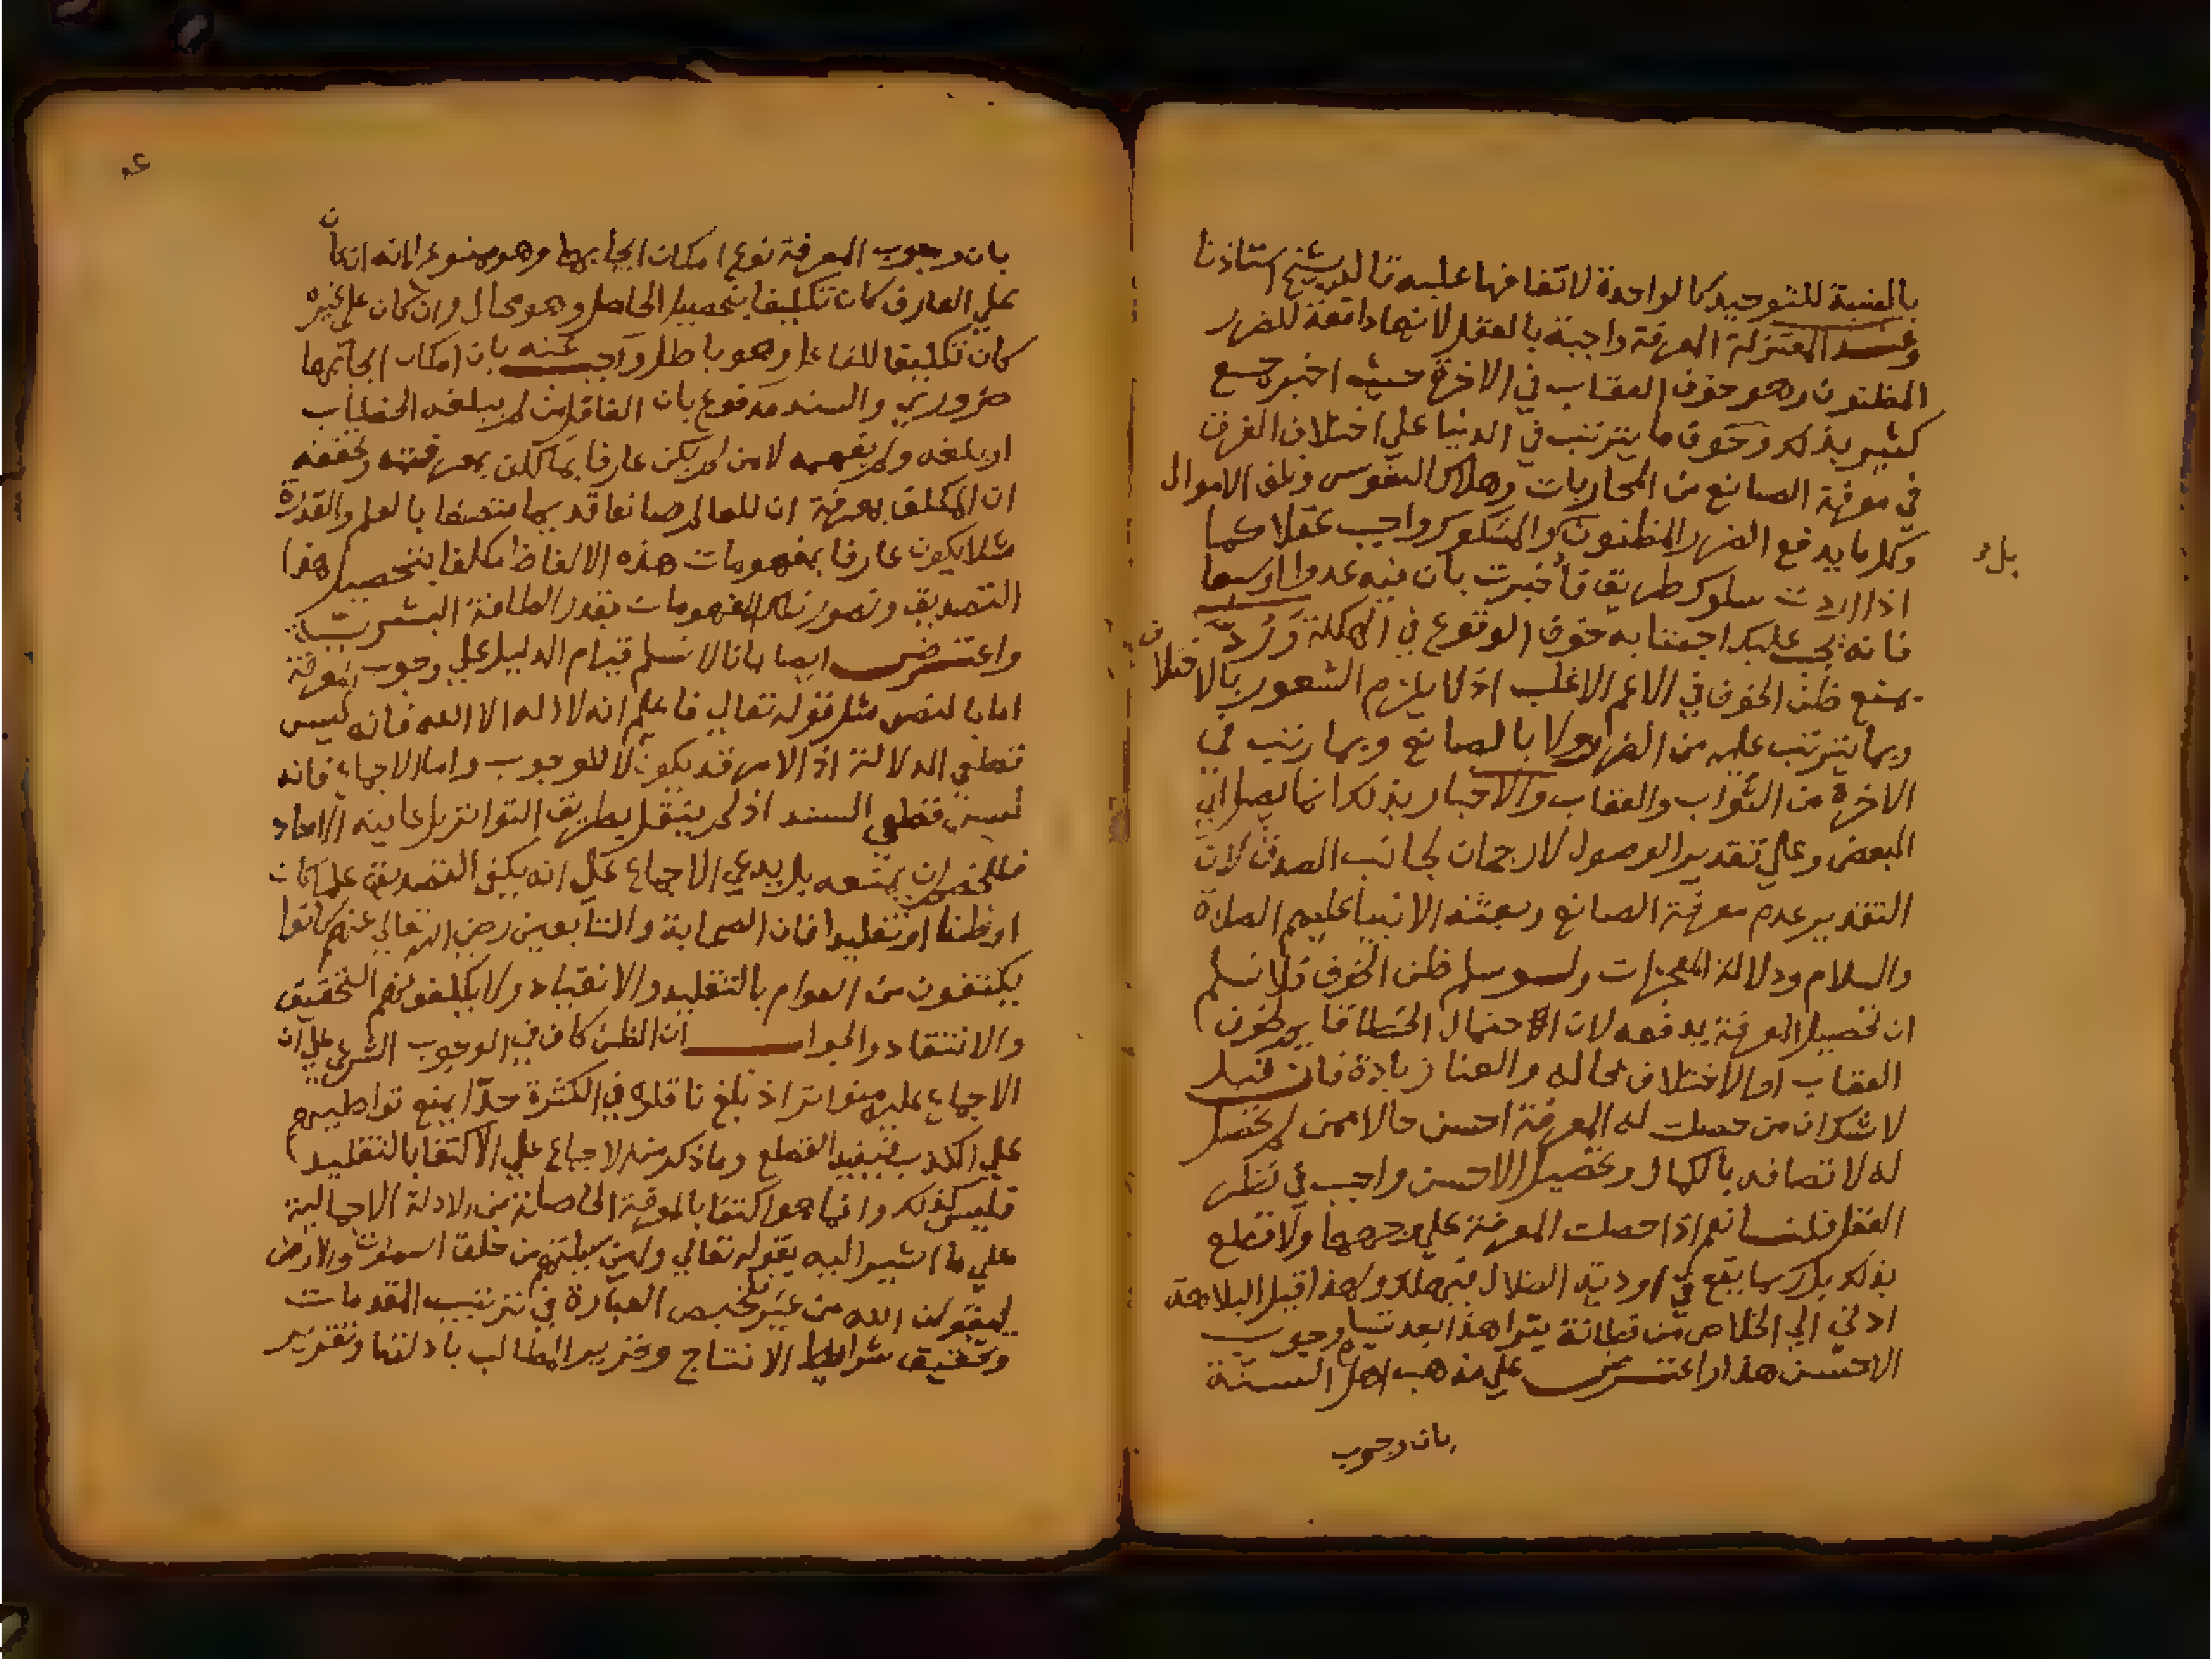 بالنسبة للتوحيد كالواحدة لاتفاقها عليه قال الشيخ استاذنا
وعند المعتزلة المعرفة واجبة بالعقل لانها دافعة للضرر
المظنون وهو خوف العقاب في الاخرة حيث اخبر جمع
كثير بذلك وخوف ما يترتب في الدنيا علي اختلاف الفرق
في معرفة الصانع من المحاربات وهلاك النفوس وتلف الاموال
وكل ما يدفع الضرر المظنون والمشكوك واجب عقلا كما
اذا اردت سلوك طريق فاخبرت بان فيه عدوا او سبعا
فانه يجب عليك اجتنابه خوف الوقوع في الهلكة ورد
بمنع ظن الخوف في الاعم الاغلب اذ لا يلزم الشعور بالاختلاف
وبما يترتب عليه من الضرر ولا بالصانع وبما رتب في
الاخرة من الثواب والعقاب والاخبار بذلك انما يصل الي
البعض وعلي تقدير الوصول لا رجحان لجانب الصدق لان
التقدير عدم معرفة الصانع وبعثته الانبيا عليهم الصلاة
والسلام ودلالة المعجزات ولو سلم ظن الخوف فلا نسلم
ان تحصيل المعرفة يدفعه لان احتمال الخطا قايم فخوف
العقاب او الاختلاف بحاله والعنا زيادة فان قيل
لا شك ان من حصلت له المعرفة احسن حالا ممن لم تحصل
له لاتصافه بالكمال وتحصيل الاحسن واجب في نظر
العقل قلنا نعم اذا حصلت المعرفة علي وجهها ولا قطع
بذلك بل ربما يقع في اودية الضلال فيهلك ولهذا قيل البلاهة
ادني الي الخلاص من فطانة بترا هذا بعد تسليم وجوب
الاحسن هذا واعترض علي مذهب اهل السنة
بان وجوب
بان وجوب المعرفة نوع امكان ايجابها وهو ممنوع لانه ان كان
علي العارف كان تكليفا بتحصيل الحاصل وهو محال وان كان علي غيره
كان تكليفا للغافل وهو باطل واجيب عنه بان امكان ايجابها
ضروري والسند مدفوع بان الغافل من لم يبلغه الخطاب
او بلغه ولم يفهمه لا من لم يكن عارفا بما كلف بمعرفته وتحققه
ان المكلف بمعرفة ان للعالم صانعا قديما متصفا بالعلم والقدرة
مثلا يكون عارفا بمفهومات هذه الالفاظ مكلفا بتحصيل هذا
التصديق وتصور تلك المفهومات بقدر الطاقة البشرية
واعترض ايضا بانا لا نسلم قيام الدليل علي وجوب المعرفة
اما بالنص مثل قوله تعالي فاعلم انه لا اله الا الله فانه ليس
قطعي الدلالة اذ الامر قد يكون لا للوجوب واما الاجماع فانه
ليس قطعي السند اذ لم ينقل بطريق التواتر بل غايته الاحاد
فللخصم ان يمنعه بل يدعي الاجماع علي انه يكفي التصديق علما كان
او ظنا او تقليدا فان الصحابة والتابعين رضي الله تعالي عنهم كانوا
يكتفون من العوام بالتقليد والانقياد ولا يكلفونهم التحقيق
والانتقاد والجواب ان الظن كاف في الوجوب الشرعي علي ان
الاجماع عليه متواتر اذ بلغ ناقلوه في الكثرة حدا يمنع تواطيهم
علي الكذب فيفيد القطع وما ذكر من الاجماع علي الاكتفا بالتقليد
فليس كذلك وانما هو اكتفا بالمعرفة الحاصلة من الادلة الاجمالية
علي ما اشير اليه بقوله تعالي ولين سيلتهم من خلق السموات والارض
ليقولن الله من غير تلخيص العبارة في ترتيب المقدمات
وتحقيق شرائط الانتاج وتحرير المطالب بادلتها وتقرير